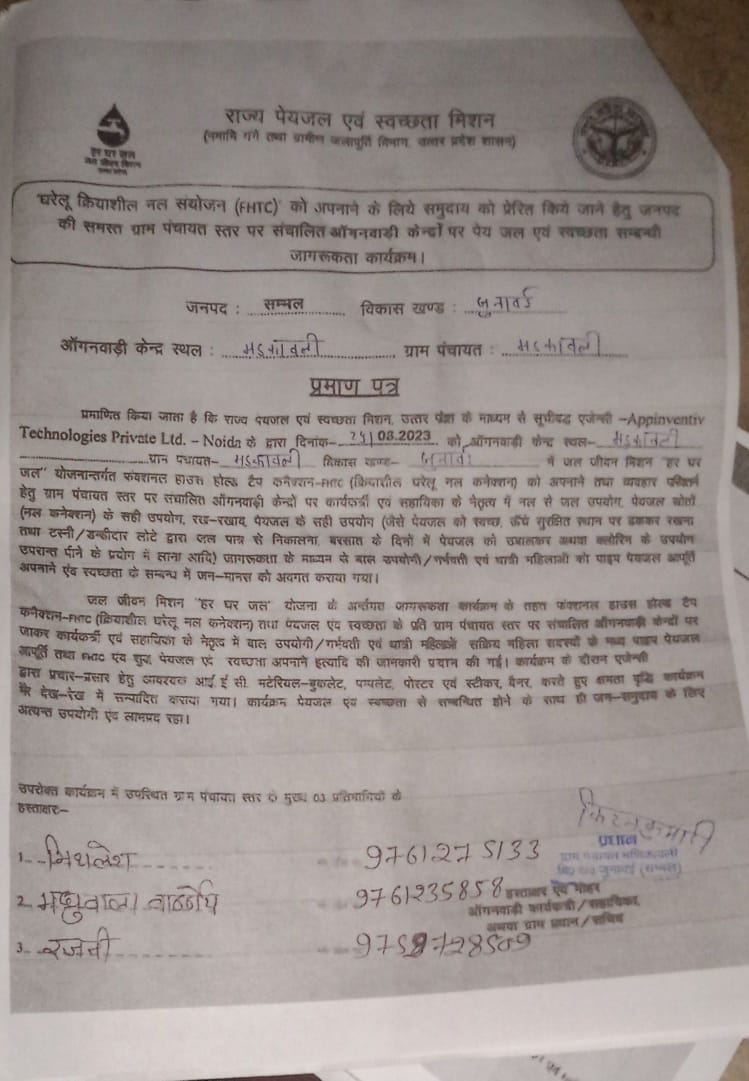 राज्य पेयजल एवं स्वच्छता मिशन
(नमामि गंगे तथा ग्रामीण जलापूर्ति विभाग, उत्तर प्रदेश शासन)
हर घर जल
जल जीवन मिशन
"घरेलू क्रियाशील नल संयोजन (FHTC)" को अपनाने के लिये समुदाय को प्रेरित किये जाने हेतु जनपद
की समस्त ग्राम पंचायत स्तर पर संचालित ऑगनवाड़ी केन्द्रों पर पेय जल एवं स्वच्छता सम्बन्धी
जागरूकता कार्यक्रम।
जनपद : सम्भल विकास खण्ड : जुनावई
ऑगनवाड़ी केन्द्र स्थल : मडकावली ग्राम पंचायत : मडकावली
प्रमाण पत्र
प्रमाणित किया जाता है कि राज्य पेयजल एवं स्वच्छता मिशन, उत्तर प्रदेश के माध्यम से सूचीबद्ध एजेन्सी –Appinventiv
Technologies Private Ltd. – Noida के द्वारा दिनांक- 08.2023 को ऑगनवाड़ी केन्द्र स्थल– मडकावली
ग्राम पंचायत– मडकावली विकास खण्ड– जुनावई में जल जीवन मिशन "हर घर
जल" योजनान्तर्गत फंक्शनल हाउस होल्ड टैप कनैक्शन-FHTC (क्रियाशील घरेलू नल कनेक्शन) को अपनाने तथा व्यवहार परिवर्तन
हेतु ग्राम पंचायत स्तर पर संचालित ऑगनवाड़ी केन्द्रों पर कार्यकर्त्री एवं सहायिका के नेतृत्व में नल से जल उपयोग, पेयजल स्रोतों
(नल कनेक्शन) के सही उपयोग, रख-रखाव, पेयजल के सही उपयोग (जैसे पेयजल को स्वच्छ, ऊँचे सुरक्षित स्थान पर ढककर रखना
तथा टस्नी/डन्डीदार लोटे द्वारा जल पात्र से निकालना, बरसात के दिनों में पेयजल को उबालकर अथवा क्लोरिन के उपयोग
उपरान्त पीने के प्रयोग में लाना आदि) जागरूकता के माध्यम से बाल उपयोगी/गर्भवती एवं धात्री महिलाओं को पाइप पेयजल आपूर्ति
अपनाने एंव स्वच्छता के सम्बन्ध में जन-मानस को अवगत कराया गया।
जल जीवन मिशन "हर घर जल" योजना के अर्न्तगत जागरूकता कार्यक्रम के तहत फंक्शनल हाउस होल्ड टैप
कनैक्शन-FHTC (क्रियाशील घरेलू नल कनेक्शन) तथा पेयजल एंव स्वच्छता के प्रति ग्राम पंचायत स्तर पर संचालित ऑगनवाड़ी केन्द्रों पर
जाकर कार्यकर्त्री एवं सहायिका के नेतृत्व में बाल उपयोगी/गर्भवती एवं धात्री महिलाओं सक्रिय महिला सदस्यों के मध्य पाइप पेयजल
आपूर्ति तथा FHTC एंव शुद्ध पेयजल एवं स्वच्छता अपनाने इत्यादि की जानकारी प्रदान की गई। कार्यक्रम के दौरान एजेन्सी
द्वारा प्रचार-प्रसार हेतु आवश्यक आई ई सी. मटेरियल-बुकलेट, पम्पलेट, पोस्टर एवं स्टीकर, बैनर, करते हुए क्षमता वृद्धि कार्यक्रम
मेरे देख-रेख में सम्पादित कराया गया। कार्यक्रम पेयजल एंव स्वच्छता से सम्बन्धित होने के साथ ही जन-समुदाय के लिए
अत्यन्त उपयोगी एंव लाभप्रद रहा।
उपरोक्त कार्यक्रम में उपस्थित ग्राम पंचायत स्तर के मुख्य 03 प्रतिभागियों के
हस्ताक्षर:–
किरनकुमारी
प्रधान
1. मिथलेश 9761275133
2. मधुवाला वार्ष्णेय 9761235858
हस्ताक्षर एंव मोहर
ऑगनवाड़ी कार्यकत्री/सहायिका,
अथवा ग्राम प्रधान/सचिव
3. रजनी